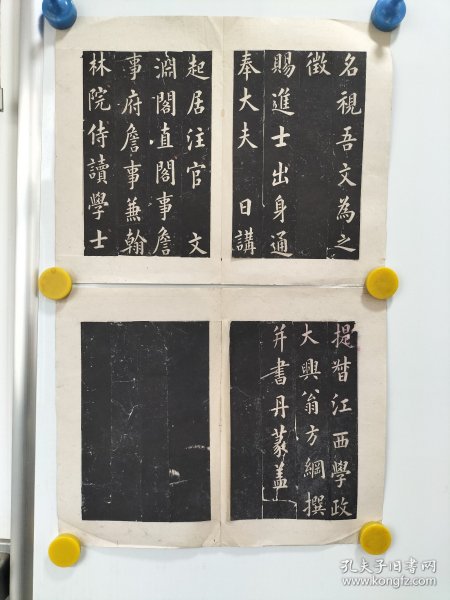 名視吾文為之
徵
賜進士出身通
奉大夫 日講
起居注官 文
淵閣直閣事詹
事府詹事兼翰
林院侍讀學士
提督江西學政
大興翁方綱撰
并書丹篆蓋
孔夫子旧书网
www.kongfz.com